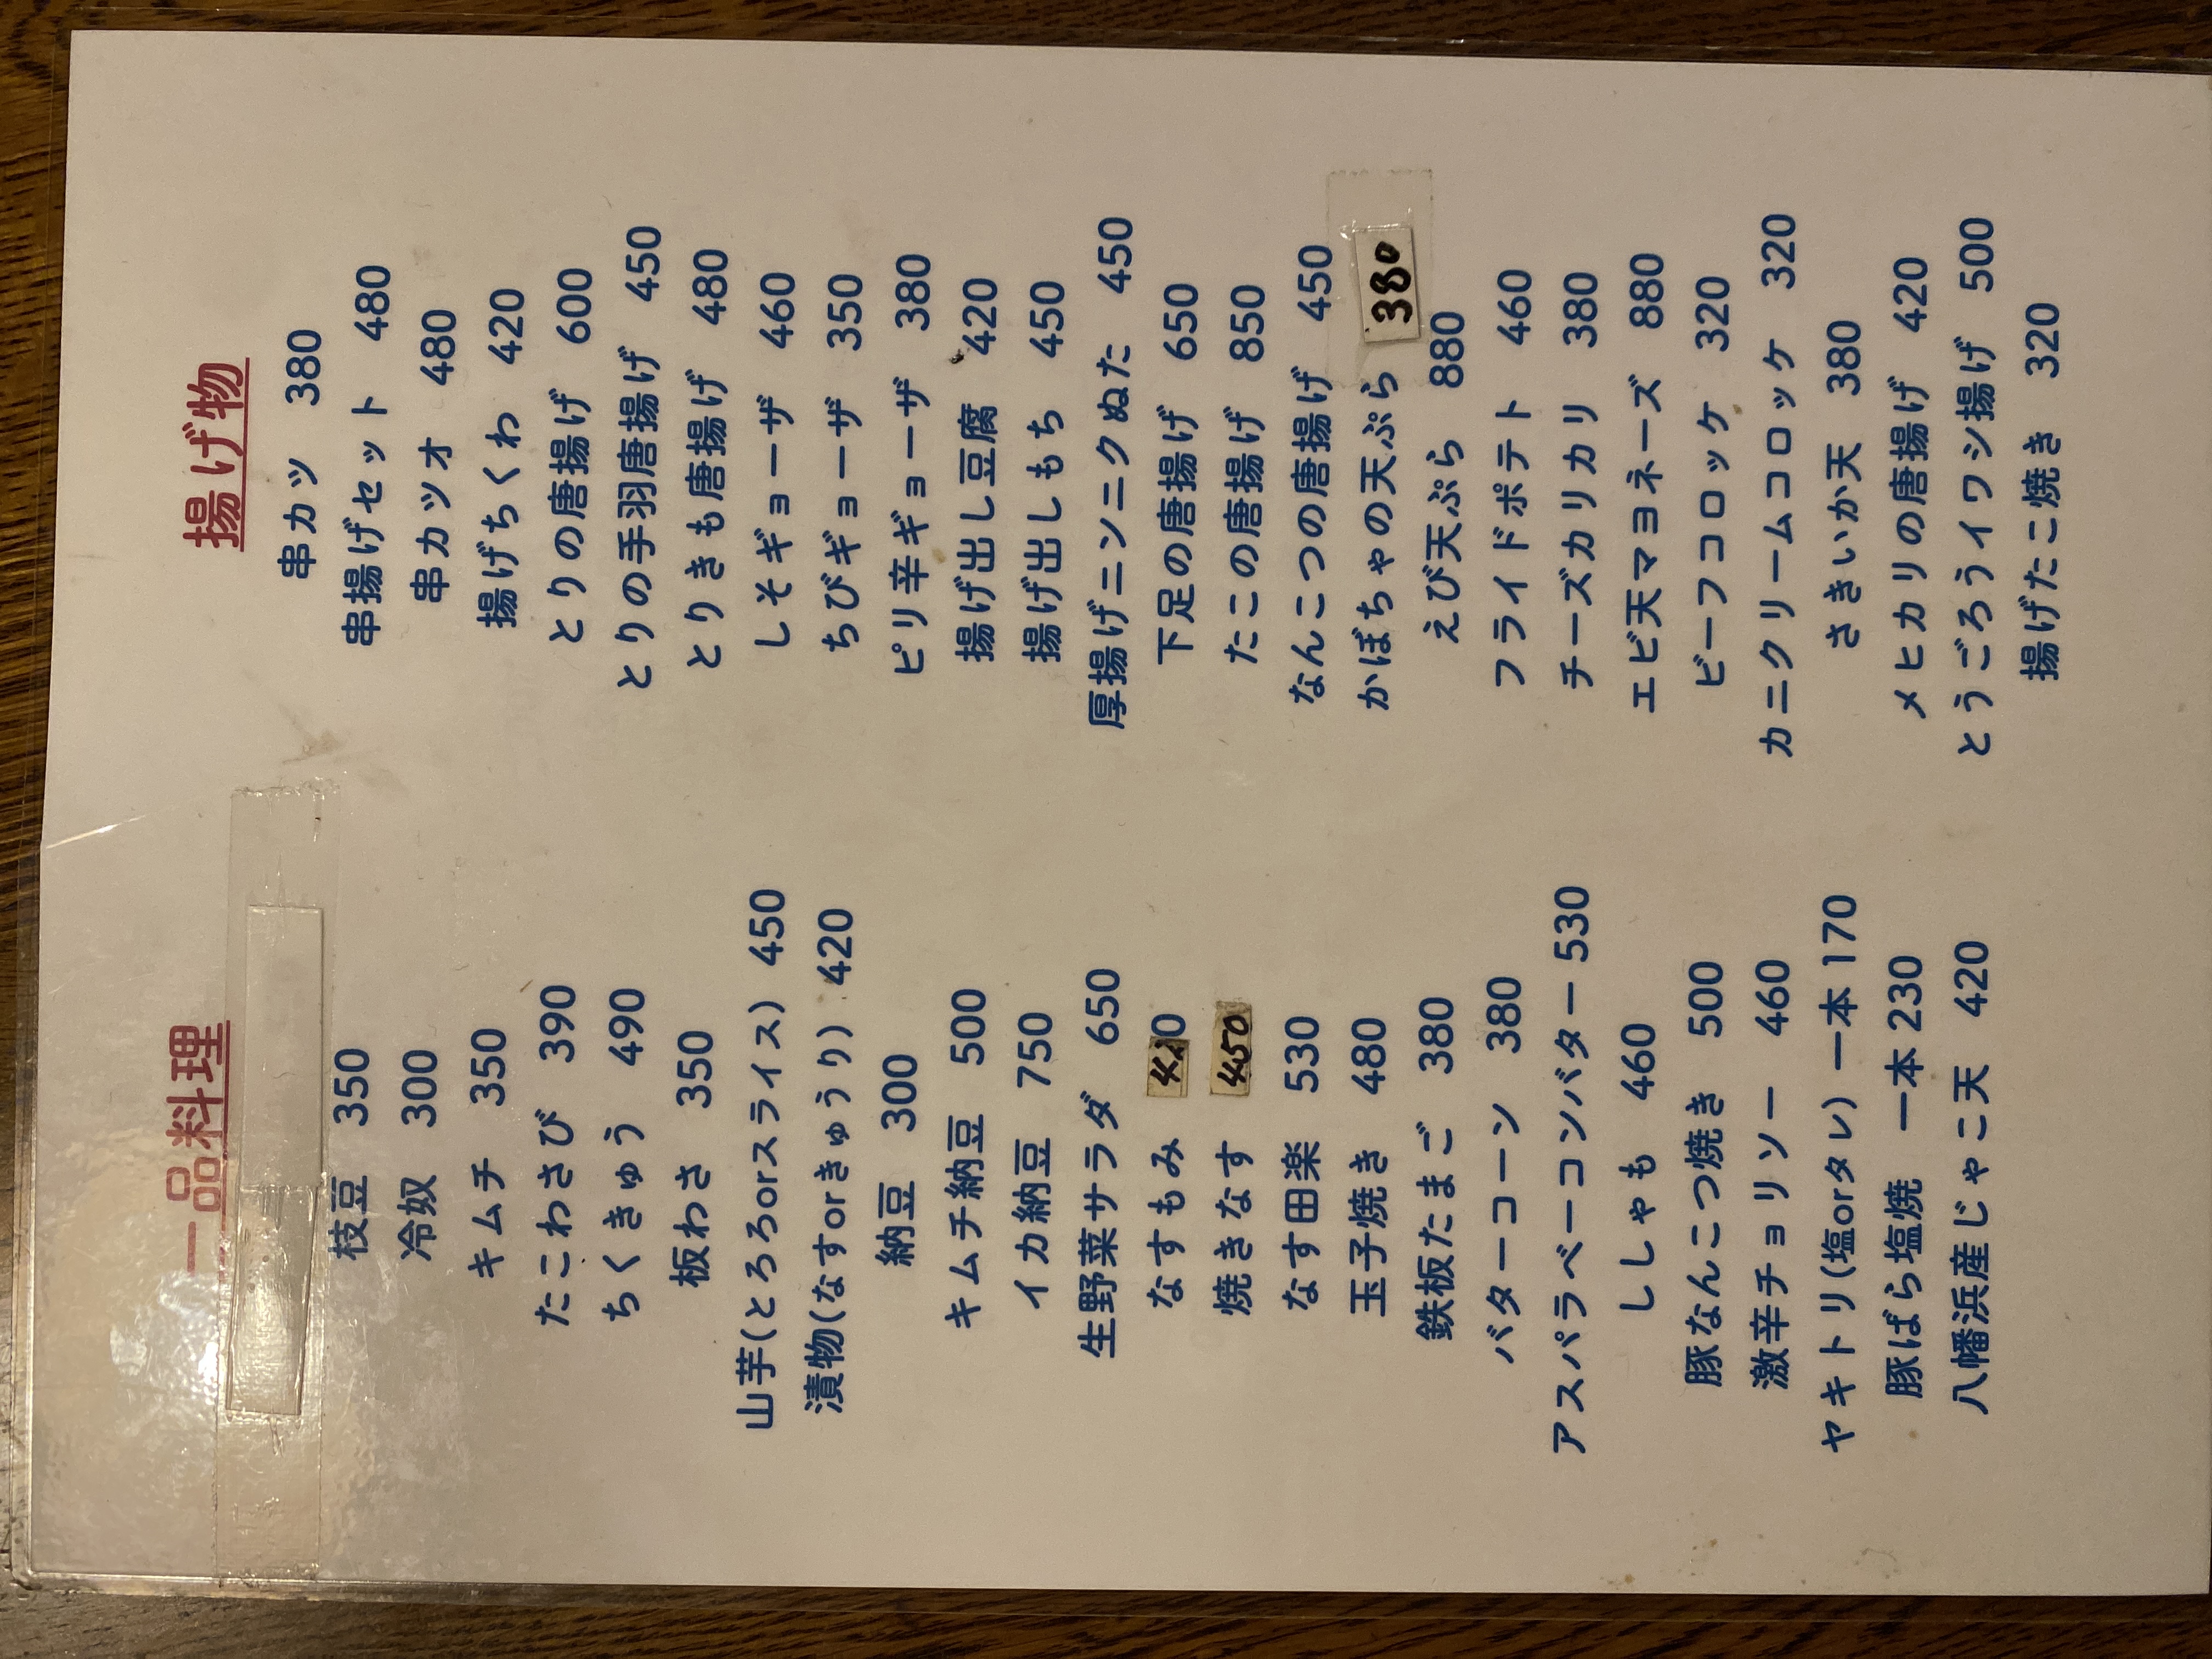 一品料理
枝豆 350
冷奴 300
キムチ 350
たこわさび 390
ちくきゅう 490
板わさ 350
山芋(とろろorスライス) 450
漬物(なすorきゅうり) 420
納豆 300
キムチ納豆 500
イカ納豆 750
生野菜サラダ 650
なすもみ 420
焼きなす 450
なす田楽 530
玉子焼き 480
鉄板たまご 380
バターコーン 380
アスパラベーコンバター 530
ししゃも 460
豚なんこつ焼き 500
激辛チョリソー 460
ヤキトリ(塩orタレ) 一本 170
豚ばら塩焼 一本 230
八幡浜産じゃこ天 420
揚げ物
串カツ 380
串揚げセット 480
串カツオ 480
揚げちくわ 420
とりの唐揚げ 600
とりの手羽唐揚げ 450
とりきも唐揚げ 480
しそギョーザ 460
ちびギョーザ 350
ピリ辛ギョーザ 380
揚げ出し豆腐 420
揚げ出しもち 450
厚揚げニンニクぬた 450
下足の唐揚げ 650
たこの唐揚げ 850
なんこつの唐揚げ 450
かぼちゃの天ぷら 380
えび天ぷら 880
フライドポテト 460
チーズカリカリ 380
エビ天マヨネーズ 880
ビーフコロッケ 320
カニクリームコロッケ 320
さきいか天 380
メヒカリの唐揚げ 420
とうごろうイワシ揚げ 500
揚げたこ焼き 320